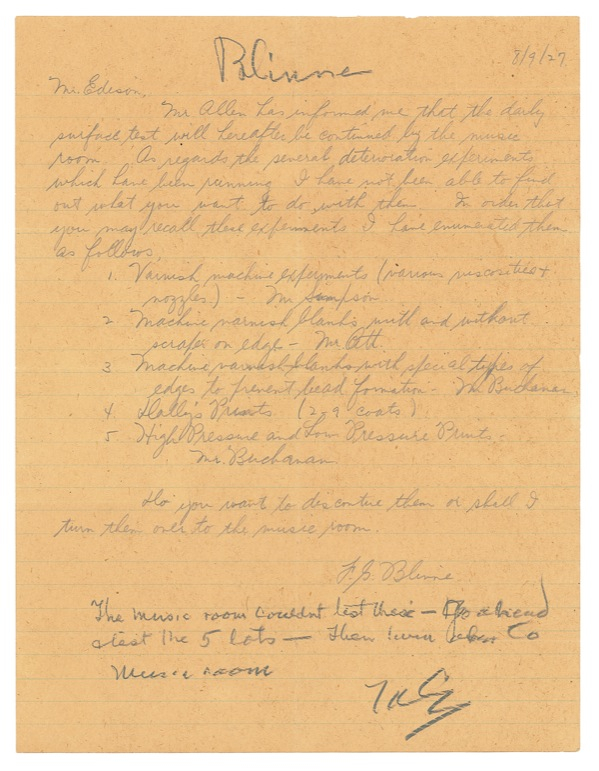 Blinne
8/9/27
Mr. Edison,
Mr Allen has informed me that the daily
surface test will hereafter be continued by the music
room. As regards the several deterioration experiments
which have been running I have not been able to find
out what you want to do with them. In order that
you may recall these experiments I have enumerated them
as follows
1. Varnish machine experiments (various viscosities +
nozzles) - Mr Simpson
2 Machine varnish blanks with and without
scraper on edge - Mr Ott.
3 Machine varnish blanks with special types of
edges to prevent bead formation - Mr Buchanan
4. Dally's Prints. (2 - 9 coats)
5. High Pressure and Low Pressure Prints -
Mr. Buchanan
Do you want to discontinue them or shall I
turn them over to the music room.
F.G. Blinne
The music room couldn't test these - Go ahead
& test the 5 lots - Then turn over to
Music room